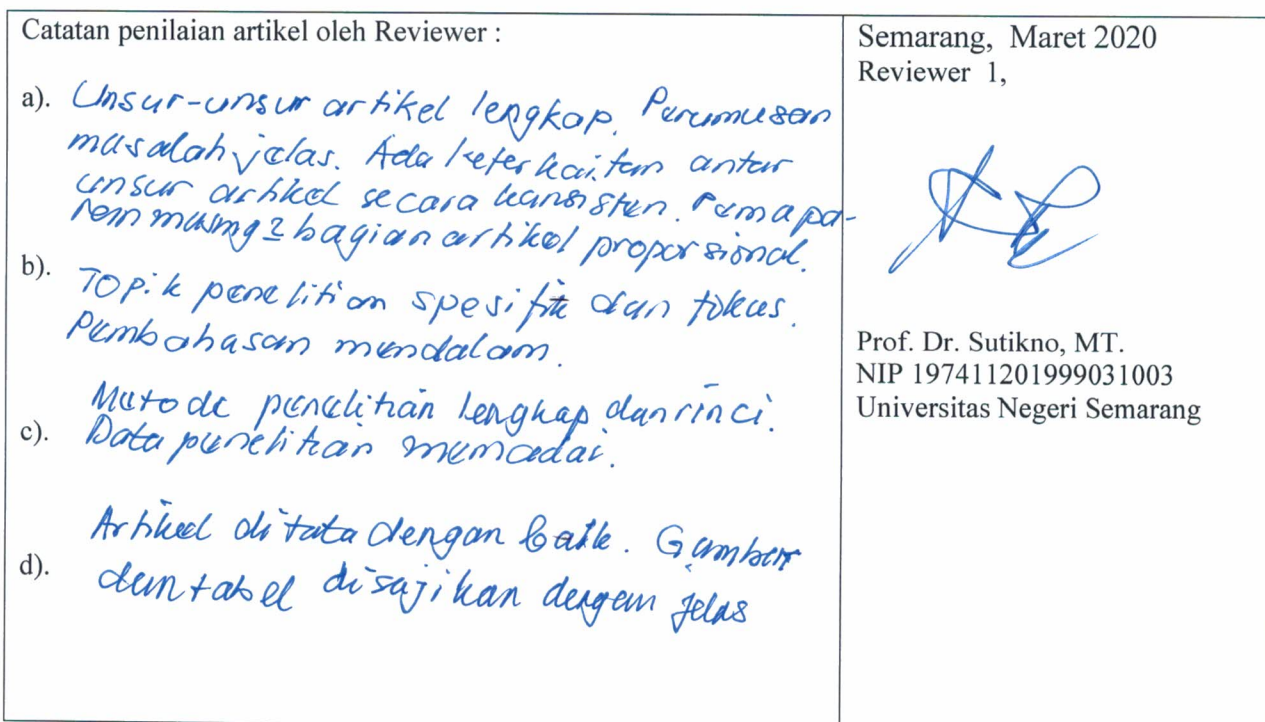 Catatan penilaian artikel oleh Reviewer :
a). Unsur-unsur artikel lengkap. Perumusan
masalah jelas. Ada keterkaitan antar
unsur artikel secara konsisten. Pemapa-
ran masing2 bagian artikel proporsional.
b). Topik penelitian spesifik dan fokus.
Pembahasan mendalam.
Metode penelitian lengkap dan rinci.
c). Data penelitian memadai.
Artikel ditata dengan baik. Gambar
d). dan tabel disajikan dengan jelas
Semarang, Maret 2020
Reviewer 1,
Prof. Dr. Sutikno, MT.
NIP 197411201999031003
Universitas Negeri Semarang